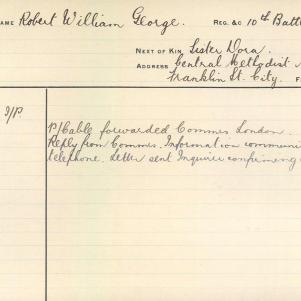 NAME Robert William George. REG. &C 10th Batt
NEXT OF KIN Sister Dora.
ADDRESS Central Methodist
Franklin St. City.
I/P
P/Cable forwarded Commrs London.
Reply from Commrs. Information communi
telephone. Letter sent Inquirer confirming